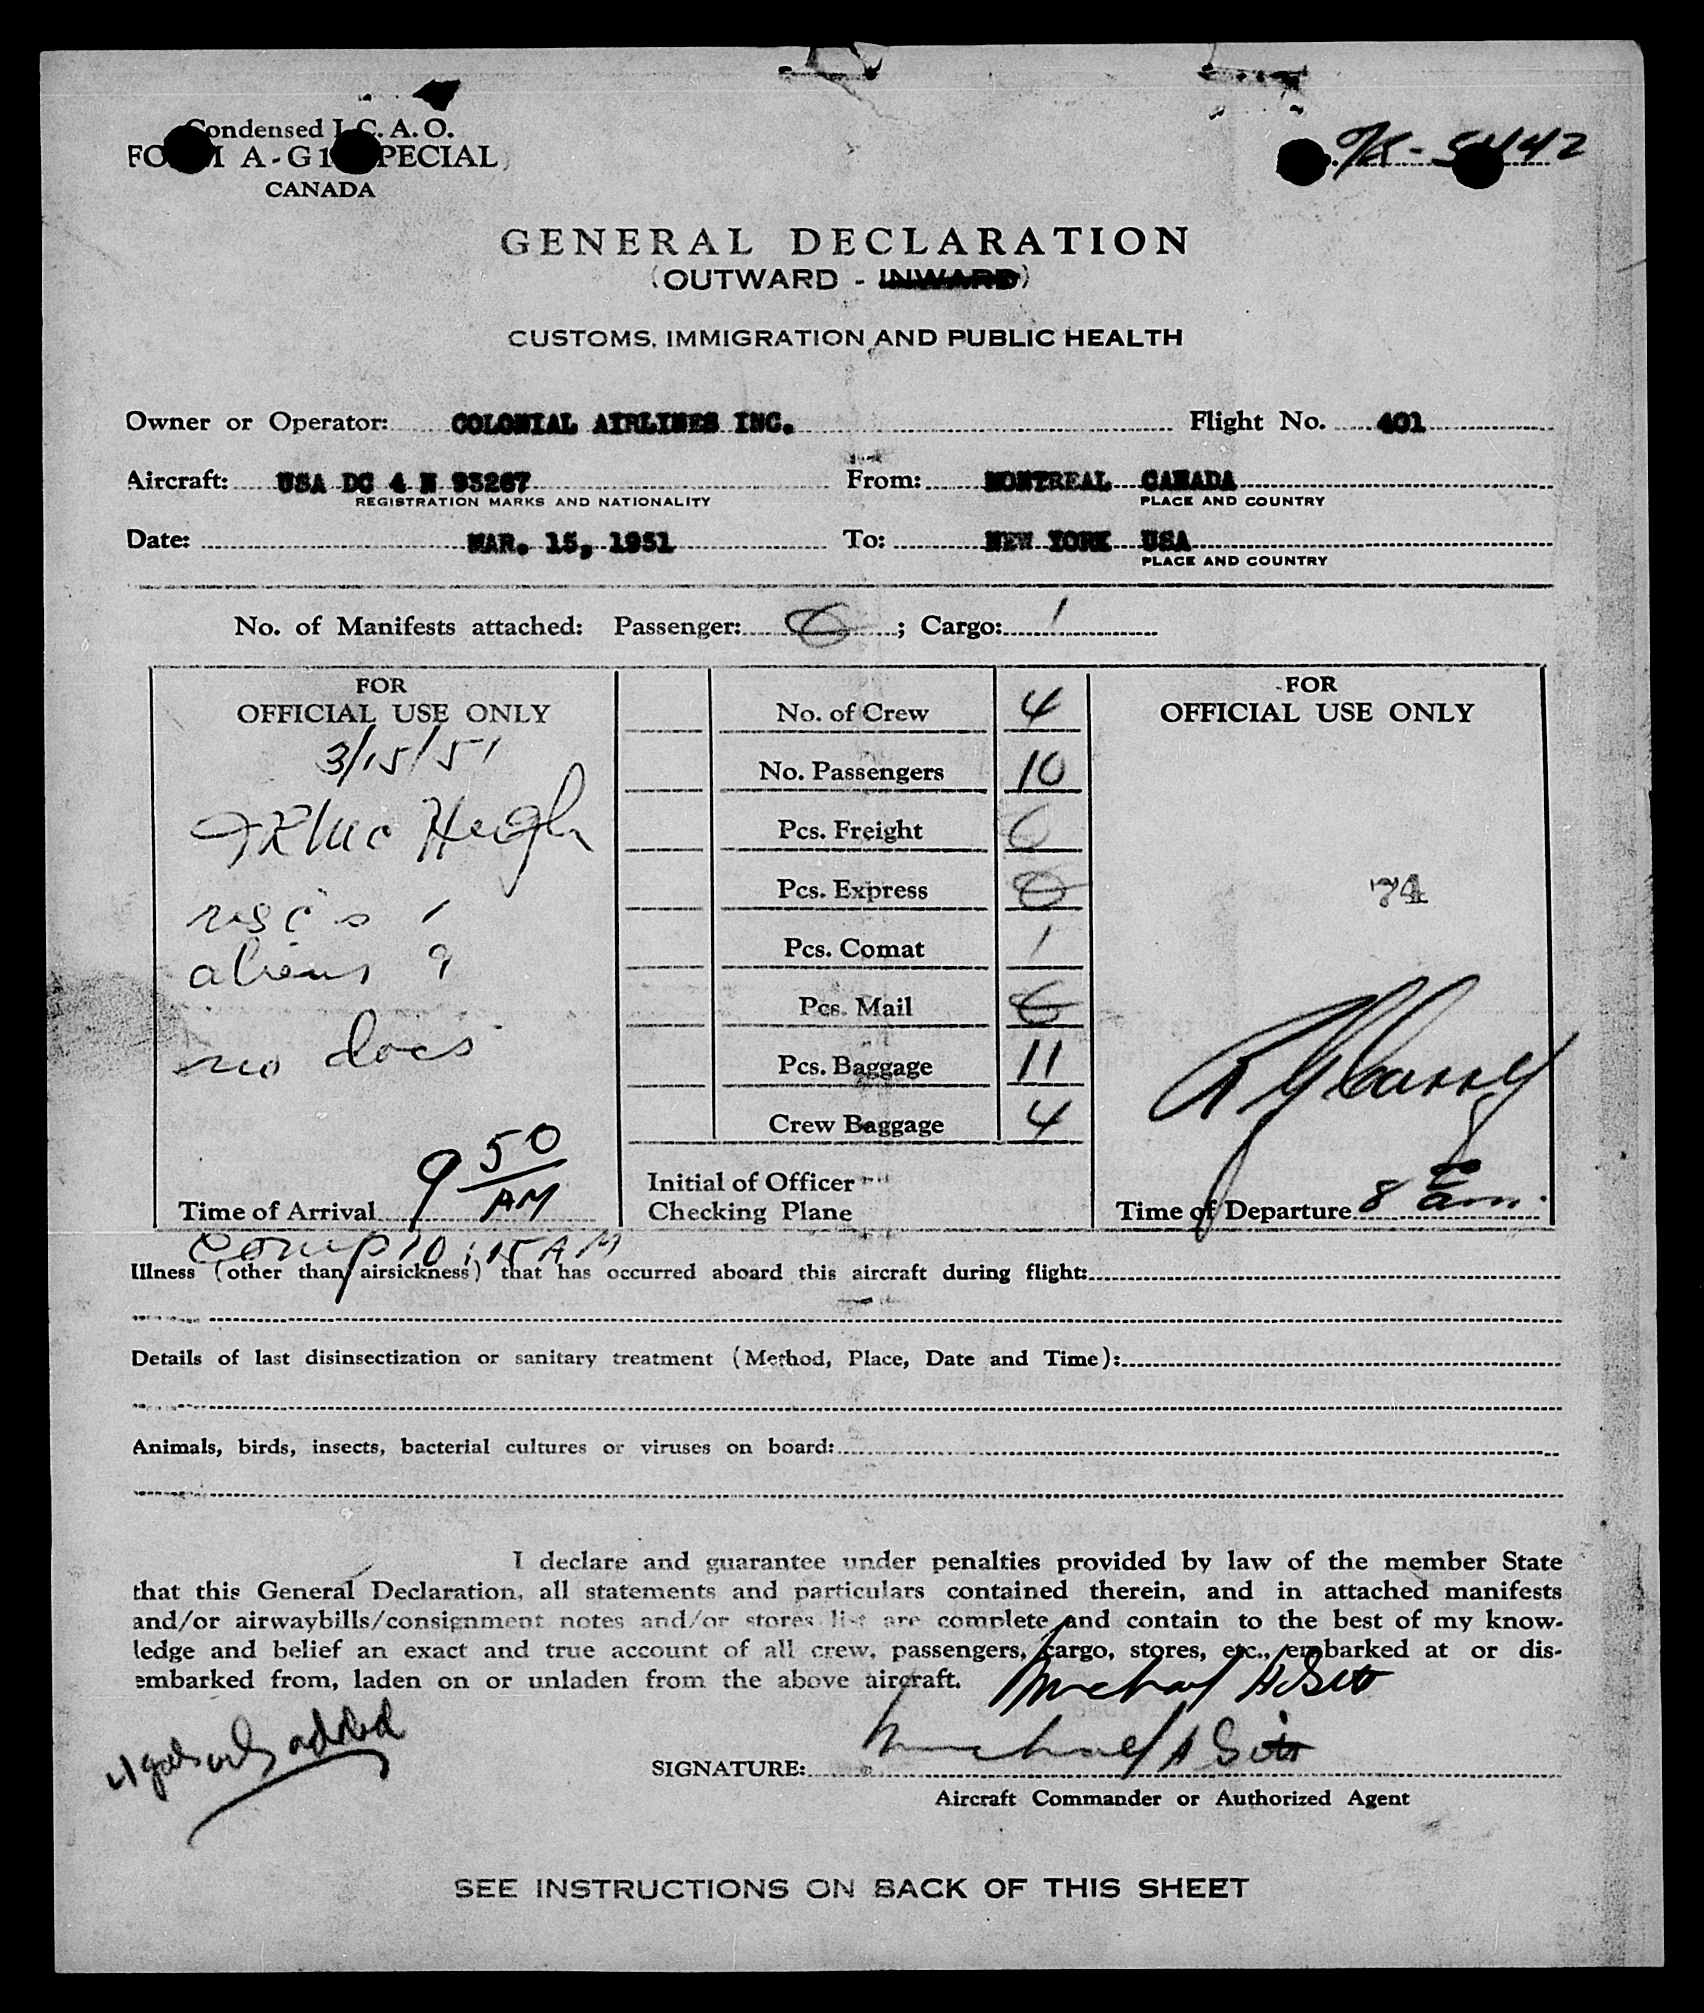 Condensed I.C.A.O.
FORM A-G1 SPECIAL
CANADA
GENERAL DECLARATION
(OUTWARD - INWARD)
CUSTOMS, IMMIGRATION AND PUBLIC HEALTH
Owner or Operator: COLONIAL AIRLINES INC. Flight No. 401
Aircraft: USA DC 4 N 93267 From: MONTREAL CANADA
REGISTRATION MARKS AND NATIONALITY PLACE AND COUNTRY
Date: MAR. 15, 1951 To: NEW YORK USA
PLACE AND COUNTRY
No. of Manifests attached: Passenger: 0; Cargo: 1
FOR
OFFICIAL USE ONLY
3/15/51
usc's 1
aliens 9
no docs
9 50 AM
Time of Arrival
Comp 10:15 AM
No. of Crew 4
No. Passengers 10
Pcs. Freight 0
Pcs. Express 0
Pcs. Comat 1
Pcs. Mail 0
Pcs. Baggage 11
Crew Baggage 4
Initial of Officer
Checking Plane
FOR
OFFICIAL USE ONLY
74
Time of Departure 8 am.
Illness (other than airsickness) that has occurred aboard this aircraft during flight:
Details of last disinsectization or sanitary treatment (Method, Place, Date and Time):
Animals, birds, insects, bacterial cultures or viruses on board:
I declare and guarantee under penalties provided by law of the member State
that this General Declaration, all statements and particulars contained therein, and in attached manifests
and/or airwaybills/consignment notes and/or stores list are complete and contain to the best of my know-
ledge and belief an exact and true account of all crew, passengers, cargo, stores, etc., embarked at or dis-
embarked from, laden on or unladen from the above aircraft.
added
SIGNATURE: Michael A
Aircraft Commander or Authorized Agent
SEE INSTRUCTIONS ON BACK OF THIS SHEET